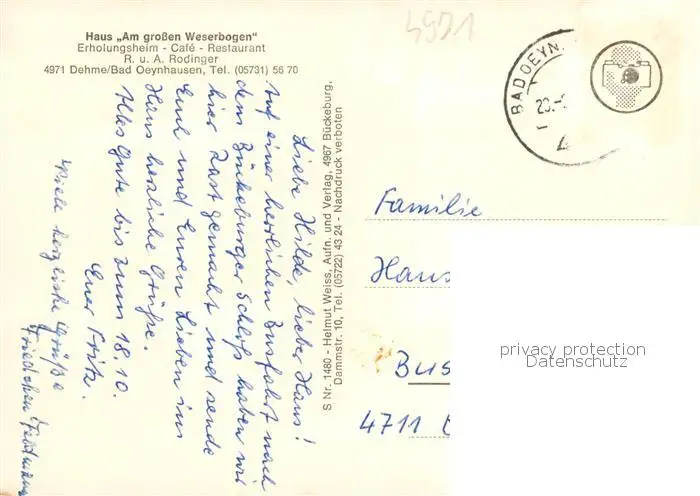 4971
Haus „Am großen Weserbogen“
Erholungsheim - Café - Restaurant
R. u. A. Rodinger
4971 Dehme/Bad Oeynhausen, Tel. (05731) 56 70
Liebe Hilde, lieber Hans!
Auf einer herrlichen Busfahrt nach
dem Bückeburger Schloß haben wir
hier Rast gemacht und sende
Euch und Euren Lieben im
Haus herzliche Grüße.
Alles Gute bis zum 18.10.
Euer Fritz.
Viele herzliche Grüße
Friedchen
S Nr. 1480 - Helmut Weiss, Aufn. und Verlag, 4967 Bückeburg,
Dammstr. 10, Tel. (05722) 43 24 - Nachdruck verboten
BAD OEYN
Familie
Hans
Bus
4711
privacy protection
Datenschutz